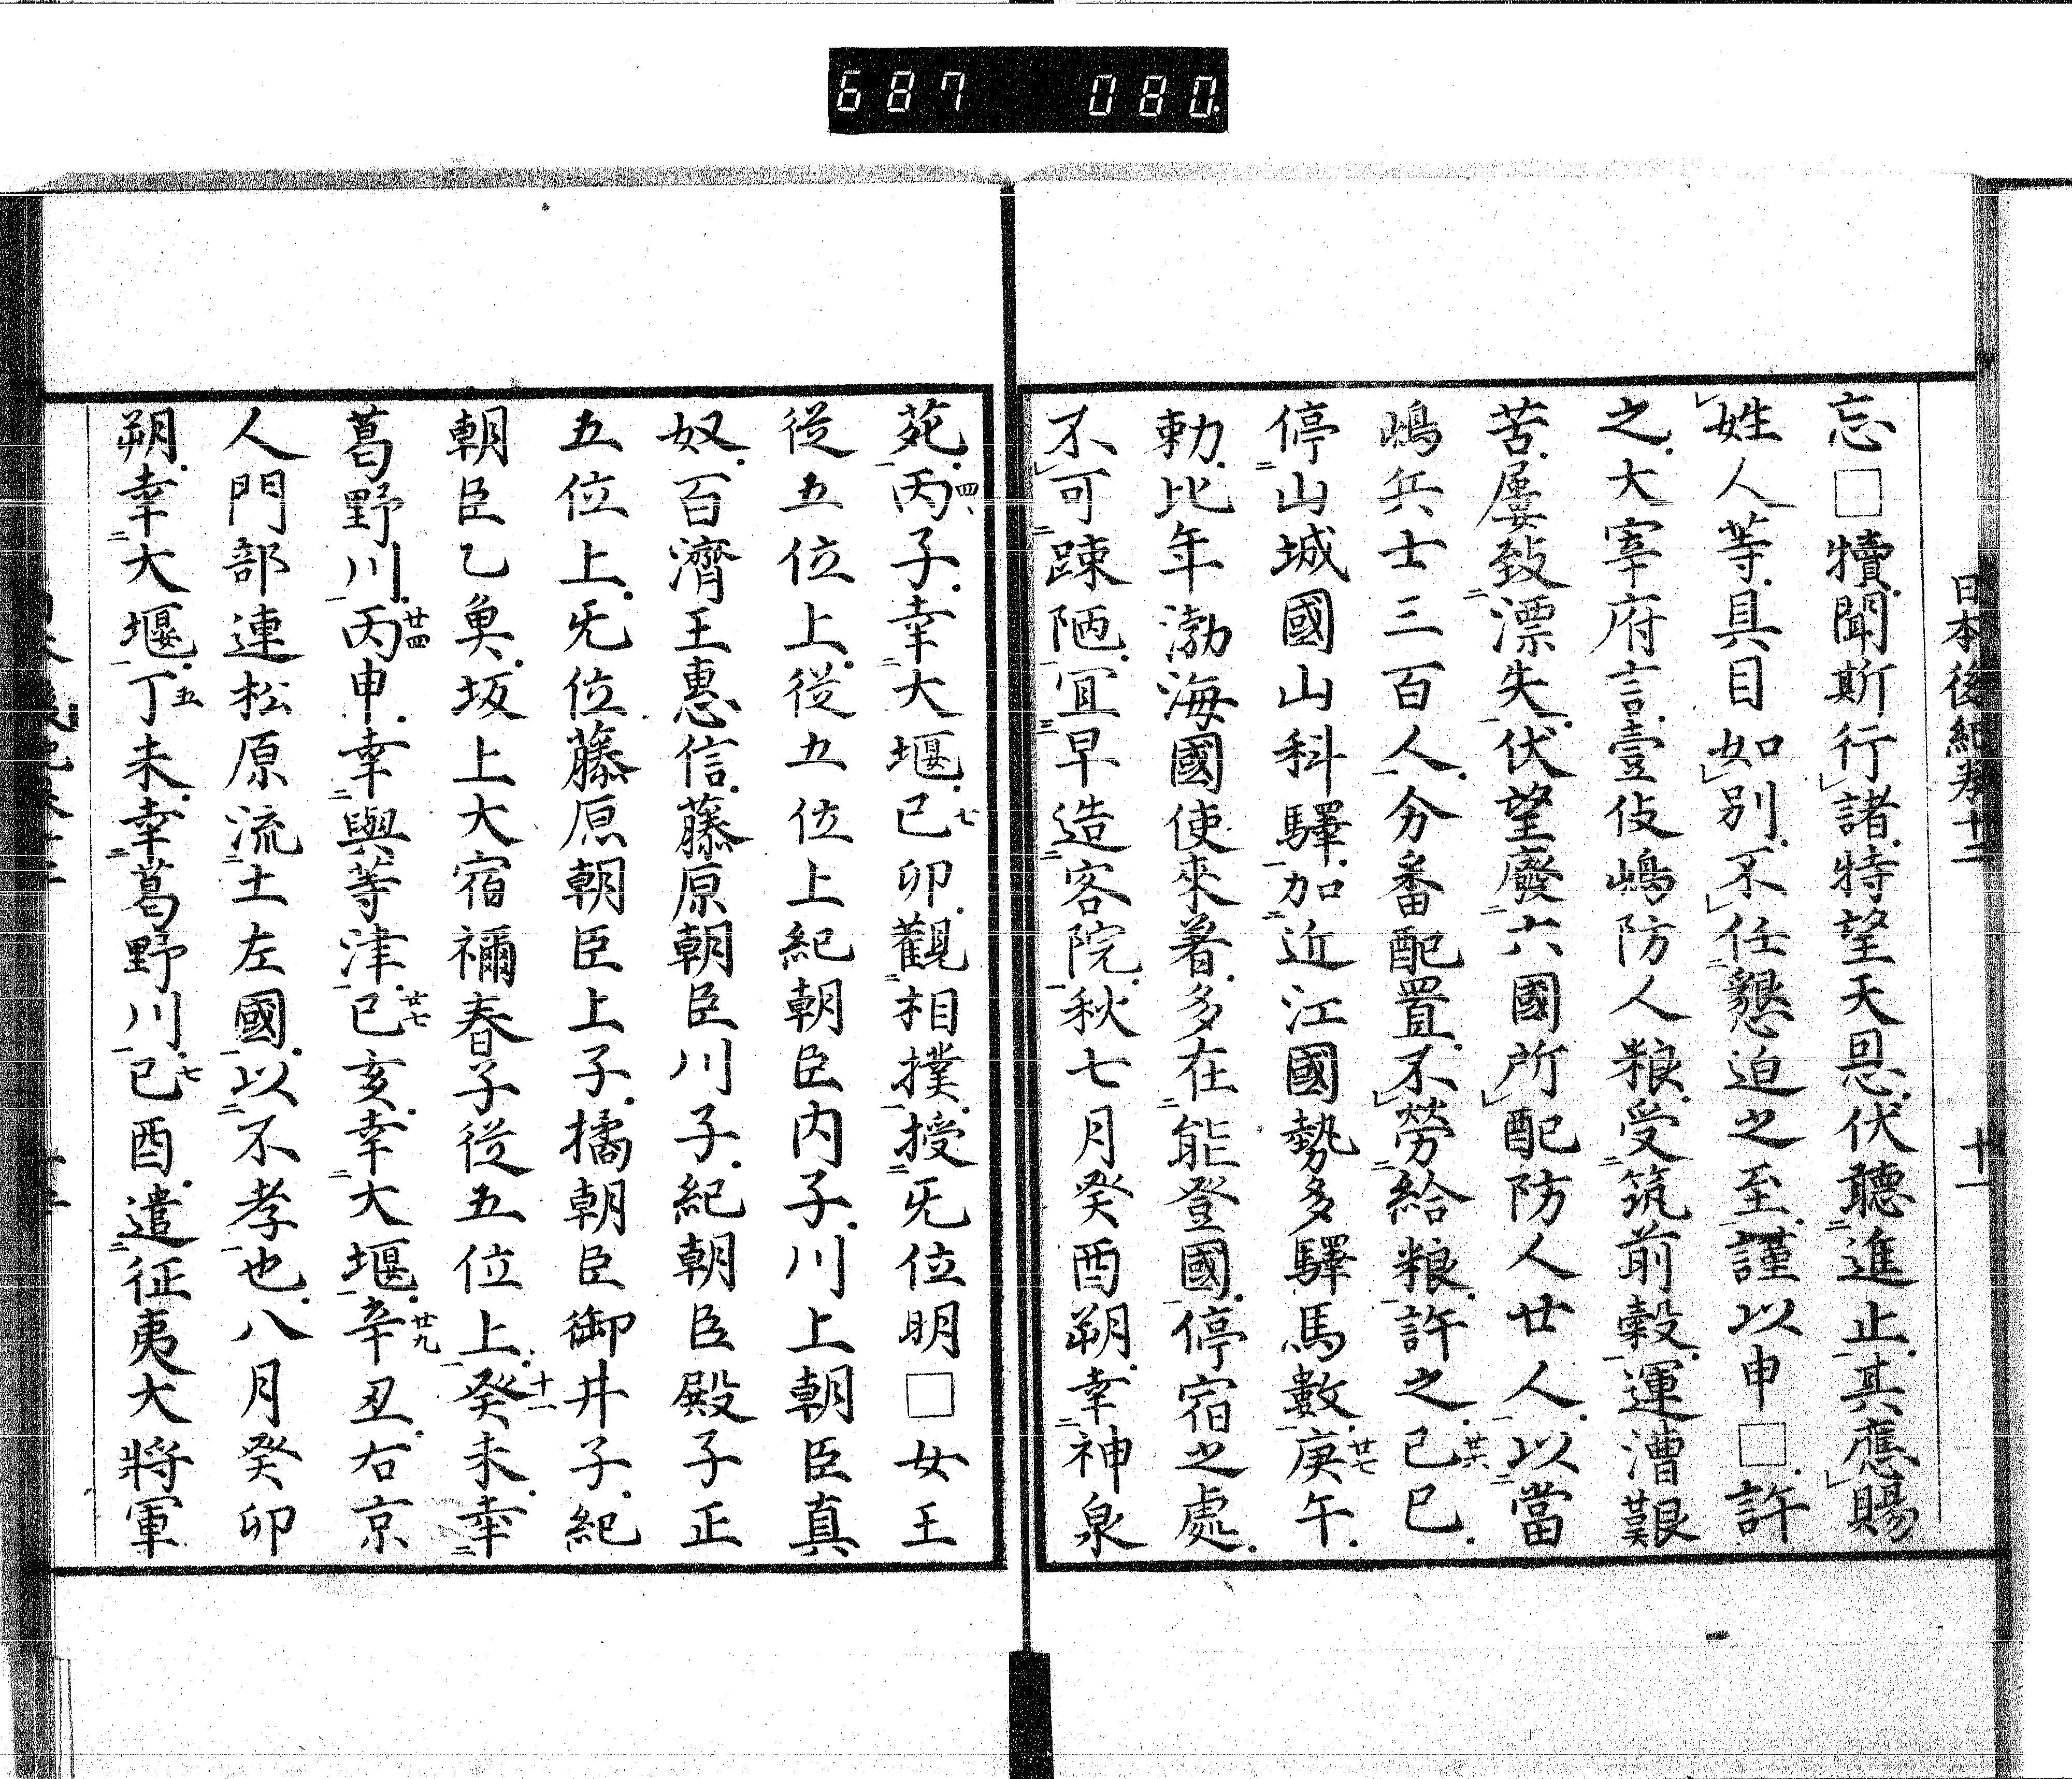 687 080
日本後紀卷十二 十一
忘□犢聞斯行諸特望天恩伏聽進止其應賜
姓人等具目如別不任懇迫之至謹以申□許
之大宰府言壹伎嶋防人粮受筑前穀運漕艱
苦屢致漂失伏望廢六國所配防人廿人以當
嶋兵士三百人分番配置不勞給粮許之己巳廿六
停山城國山科驛加近江國勢多驛馬數庚午廿七
勅比年渤海國使來着多在能登國停宿之處
不可踈陋宜早造客院秋七月癸酉朔幸神泉
苑丙子四幸大堰己卯七觀相撲授旡位明□女王
從五位上從五位上紀朝臣內子川上朝臣真
奴百濟王惠信藤原朝臣川子紀朝臣殿子正
五位上旡位藤原朝臣上子橘朝臣御井子紀
朝臣乙魚坂上大宿禰春子從五位上癸未十一幸
葛野川丙申廿四幸與等津己亥廿七幸大堰辛丑廿九右京
人門部連松原流土左國以不孝也八月癸卯
朔幸大堰丁未五幸葛野川己酉七遣征夷大將軍